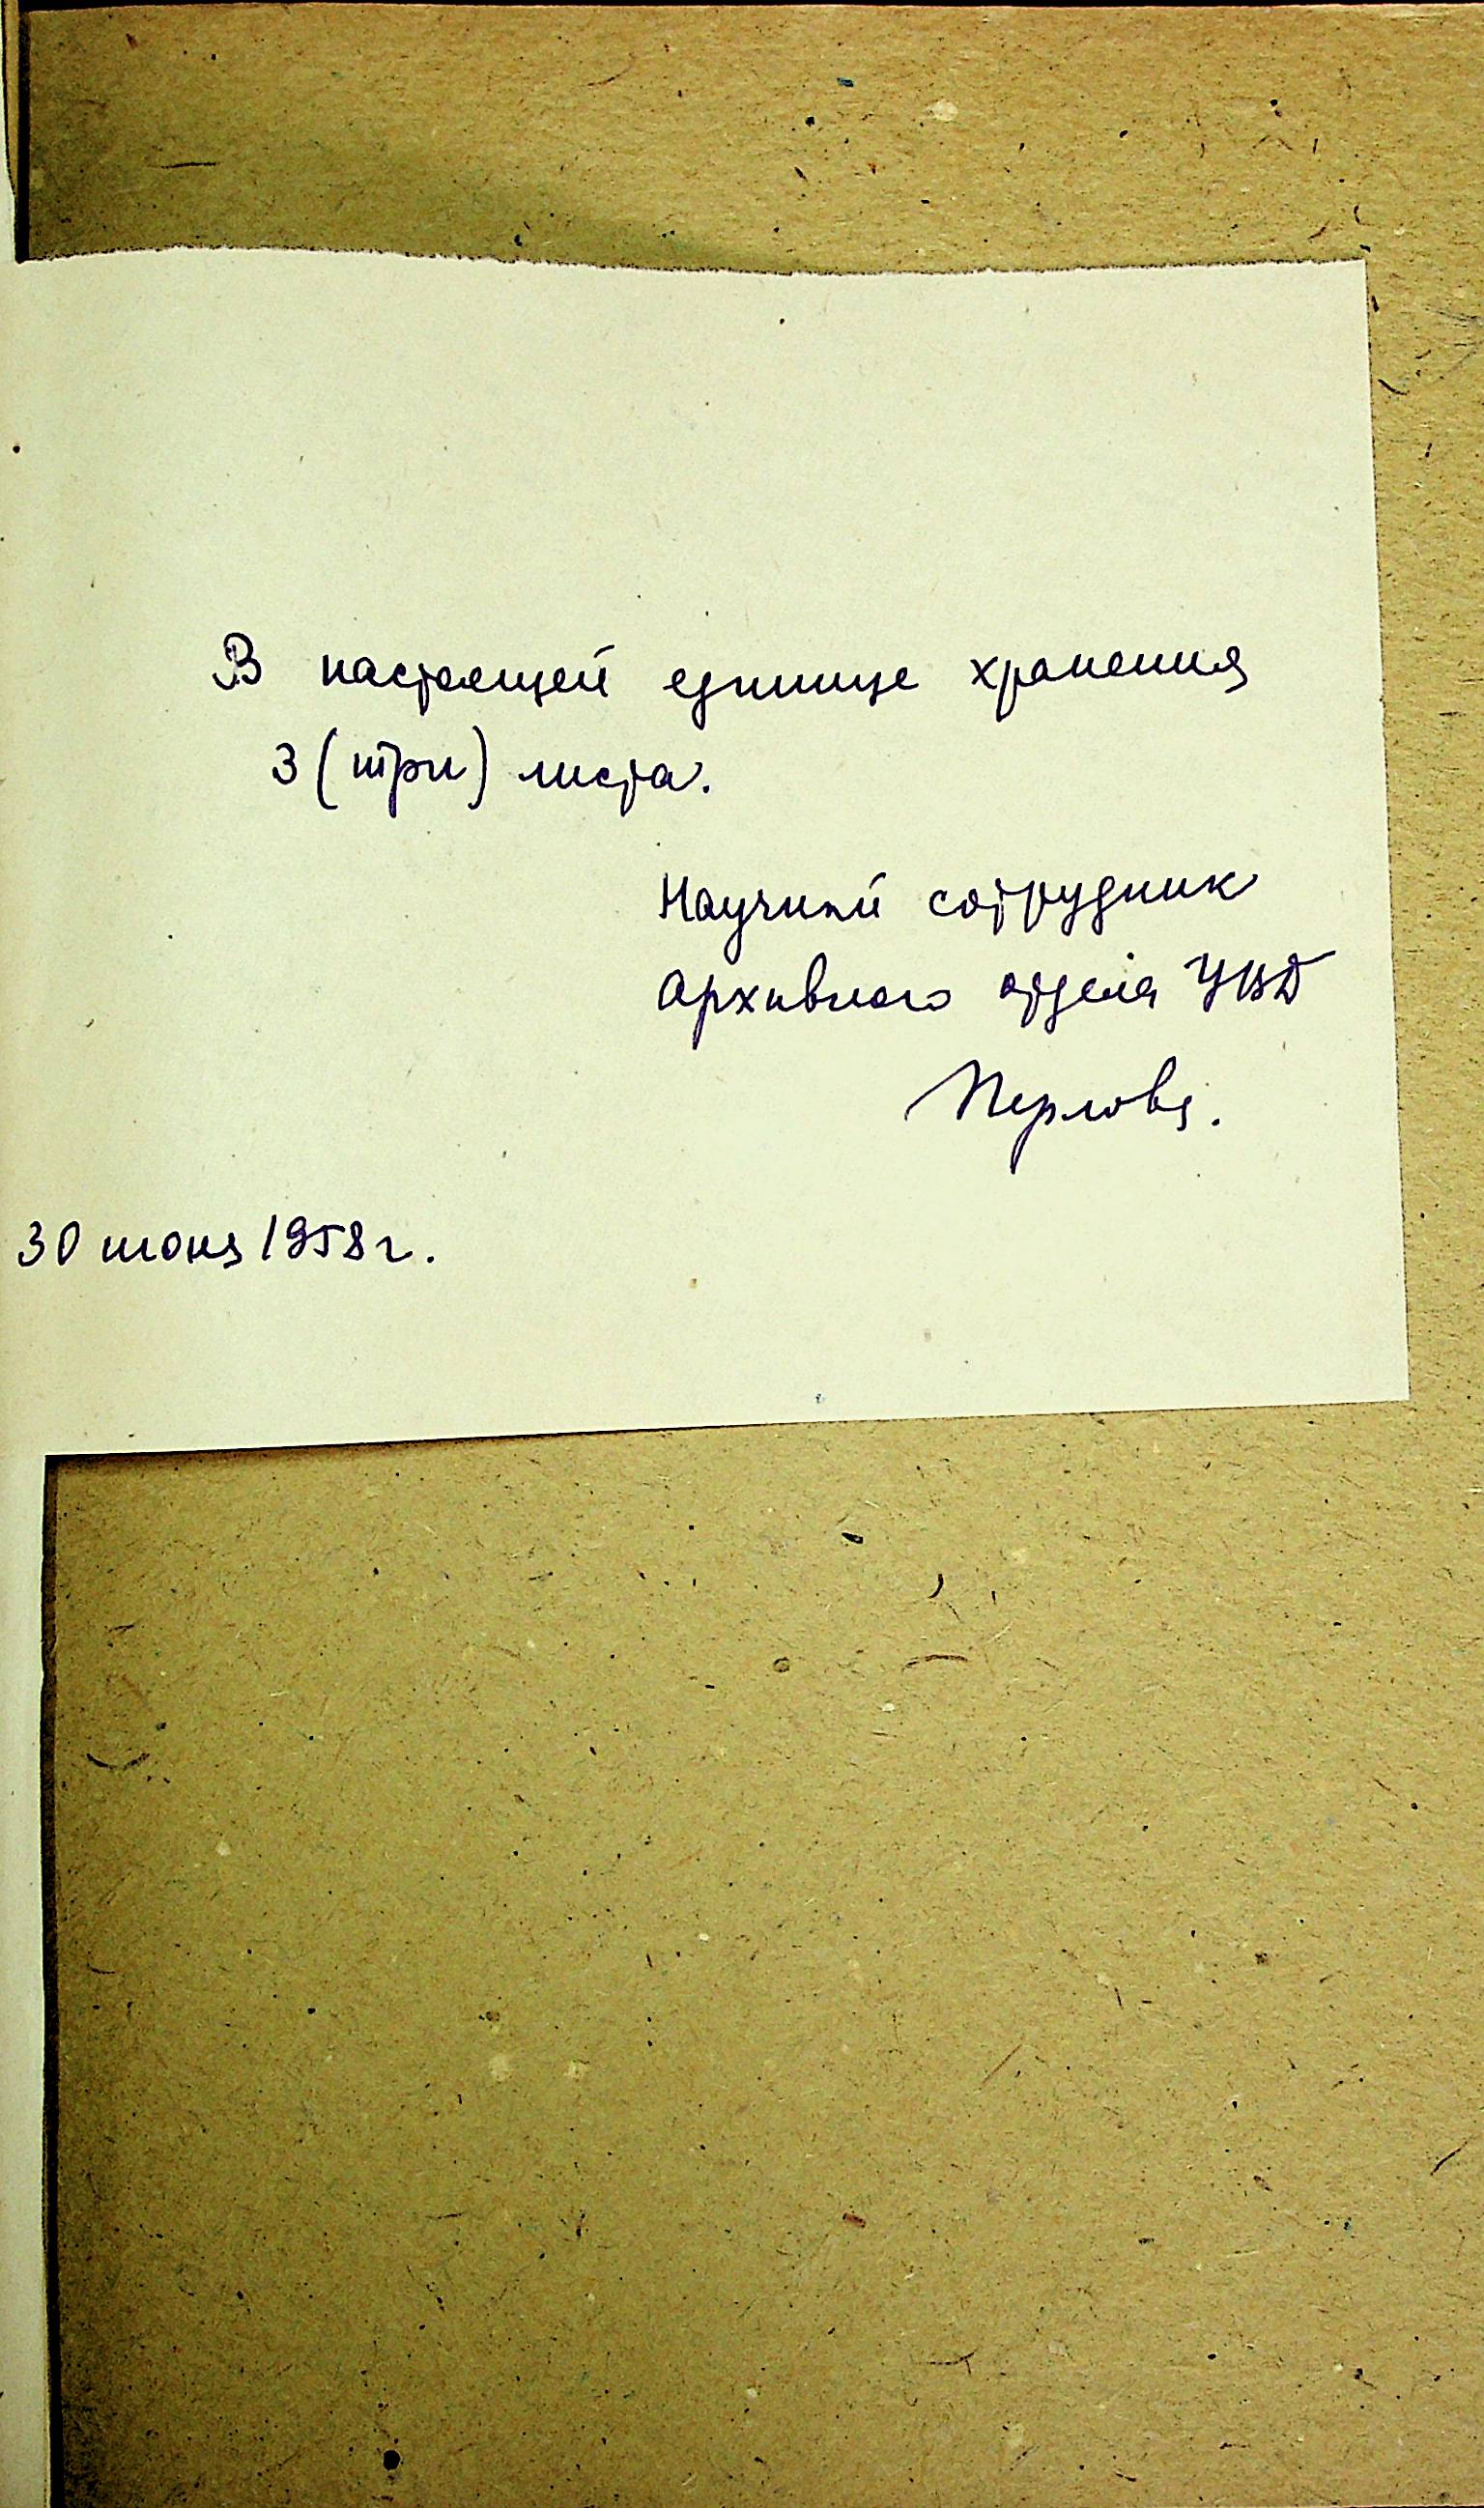 В настоящей единице хранения
3 (три) листа.
Научный сотрудник
Архивного отдела УВД
Перлова.
30 июня 1958 г.